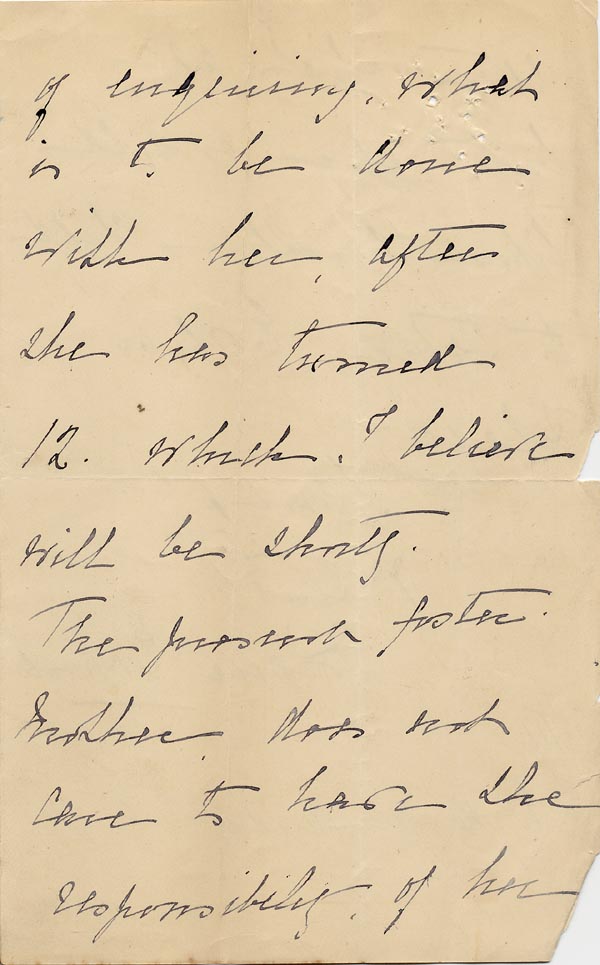 of enquiring, what
is to be done
with her, after
she has turned
12. which, I believe
will be shortly.
The present foster
Mother does not
care to have the
responsibility, of her